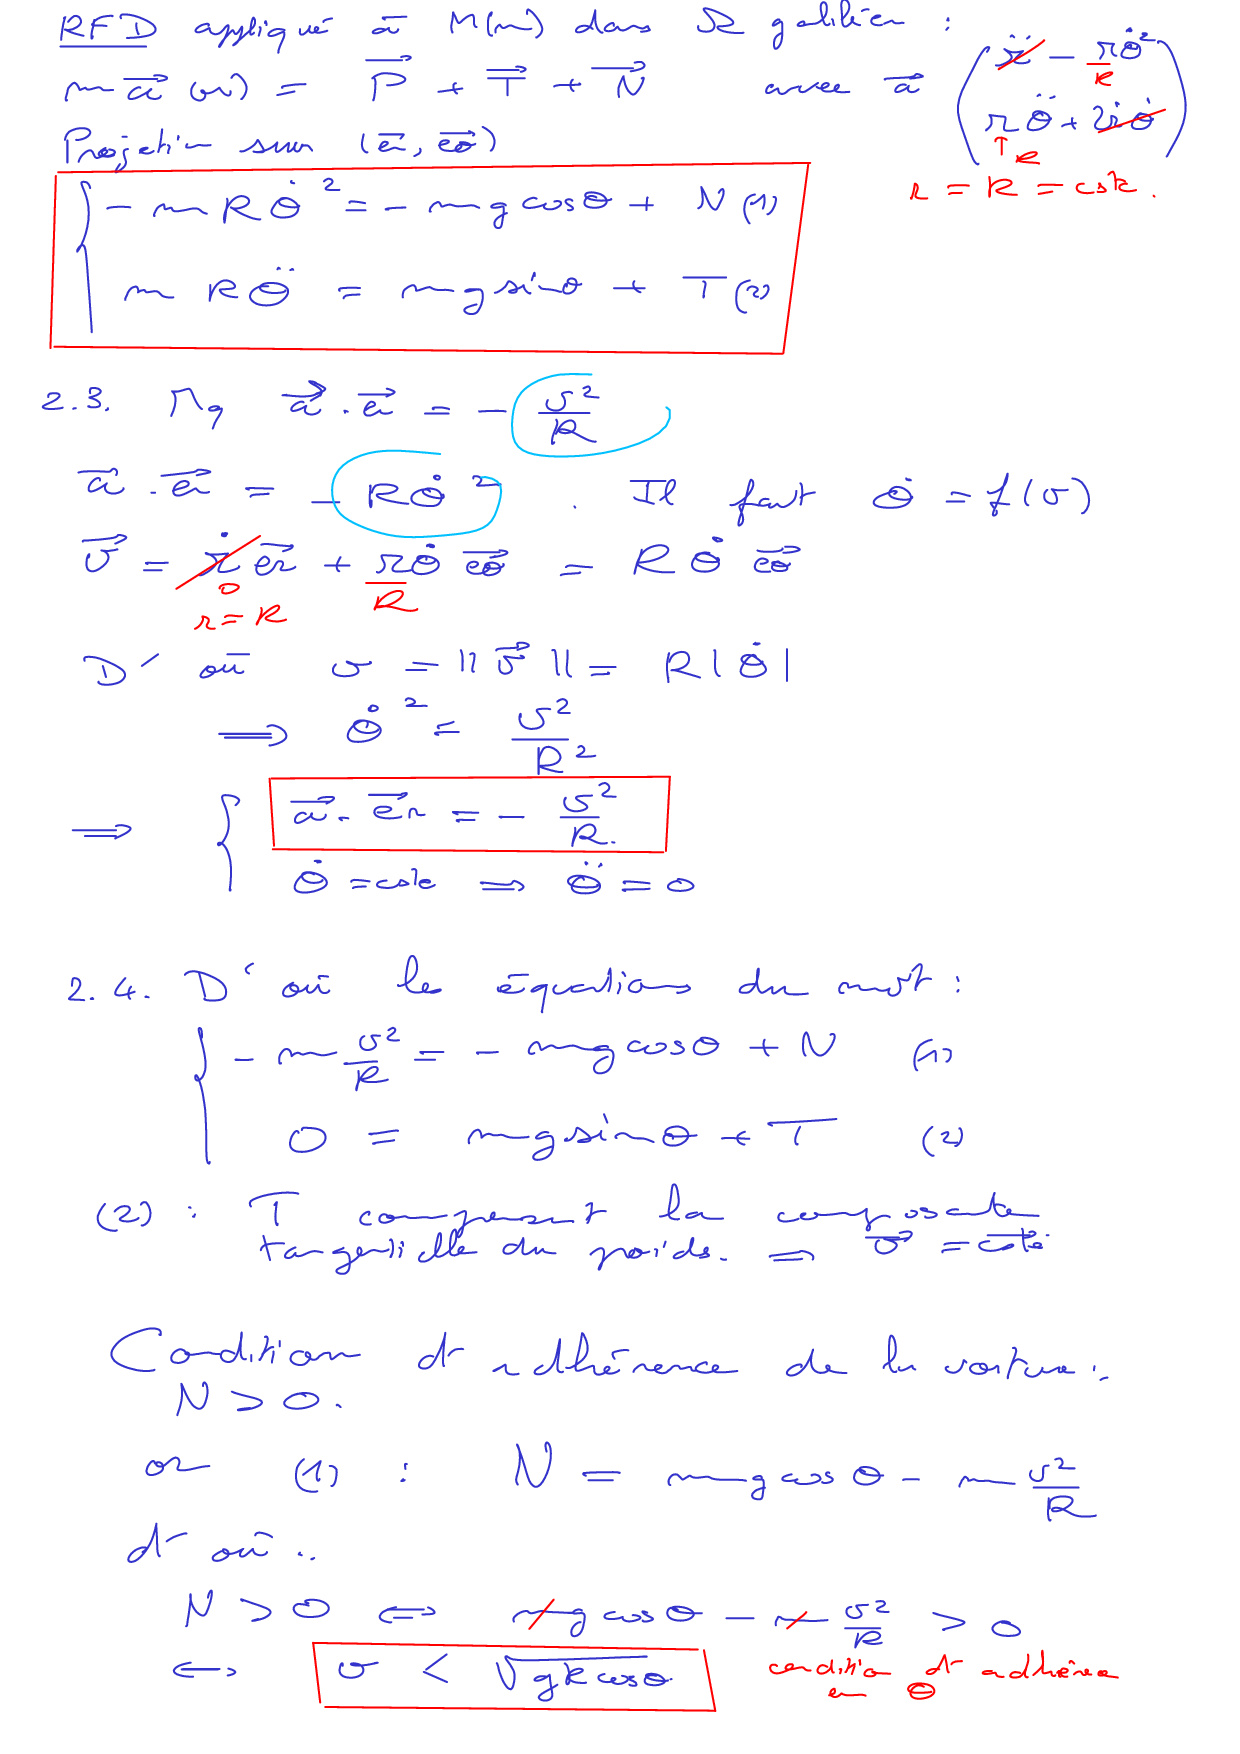 RFD appliqué à M(m) dans R galiléen :
m a⃗ (M) = P⃗ + T⃗ + N⃗ avec a⃗ ( r̈ - rθ̇² R
rθ̈ + 2ṙθ̇ ) R
Projection sur (e⃗r, e⃗θ)
r = R = cste.
{ - m R θ̇² = - mg cosθ + N (1)
m R θ̈ = mg sinθ + T (2)
2.3. Mq a⃗ . e⃗r = - v²/R
a⃗ . e⃗r = - Rθ̇² . Il faut θ̇ = f(v)
v⃗ = ṙ e⃗r + rθ̇ e⃗θ = R θ̇ e⃗θ
0 R
r = R
D'où v = ||v⃗|| = R |θ̇|
⟹ θ̇² = v²/R²
⟹ { a⃗ . e⃗r = - v²/R.
θ̇ = cste ⟹ θ̈ = 0
2.4. D'où les équations du mvt :
{ - m v²/R = - mg cosθ + N (1)
0 = mg sinθ + T (2)
(2) : T compensent la composante
tangentielle du poids. ⟹ v⃗ = cste
Condition d'adhérence de la voiture :
N > 0.
or (1) : N = mg cosθ - m v²/R
d'où :
N > 0 ⟺ mg cosθ - m v²/R > 0
⟺ v < √gR cosθ condition d'adhérence
en θ